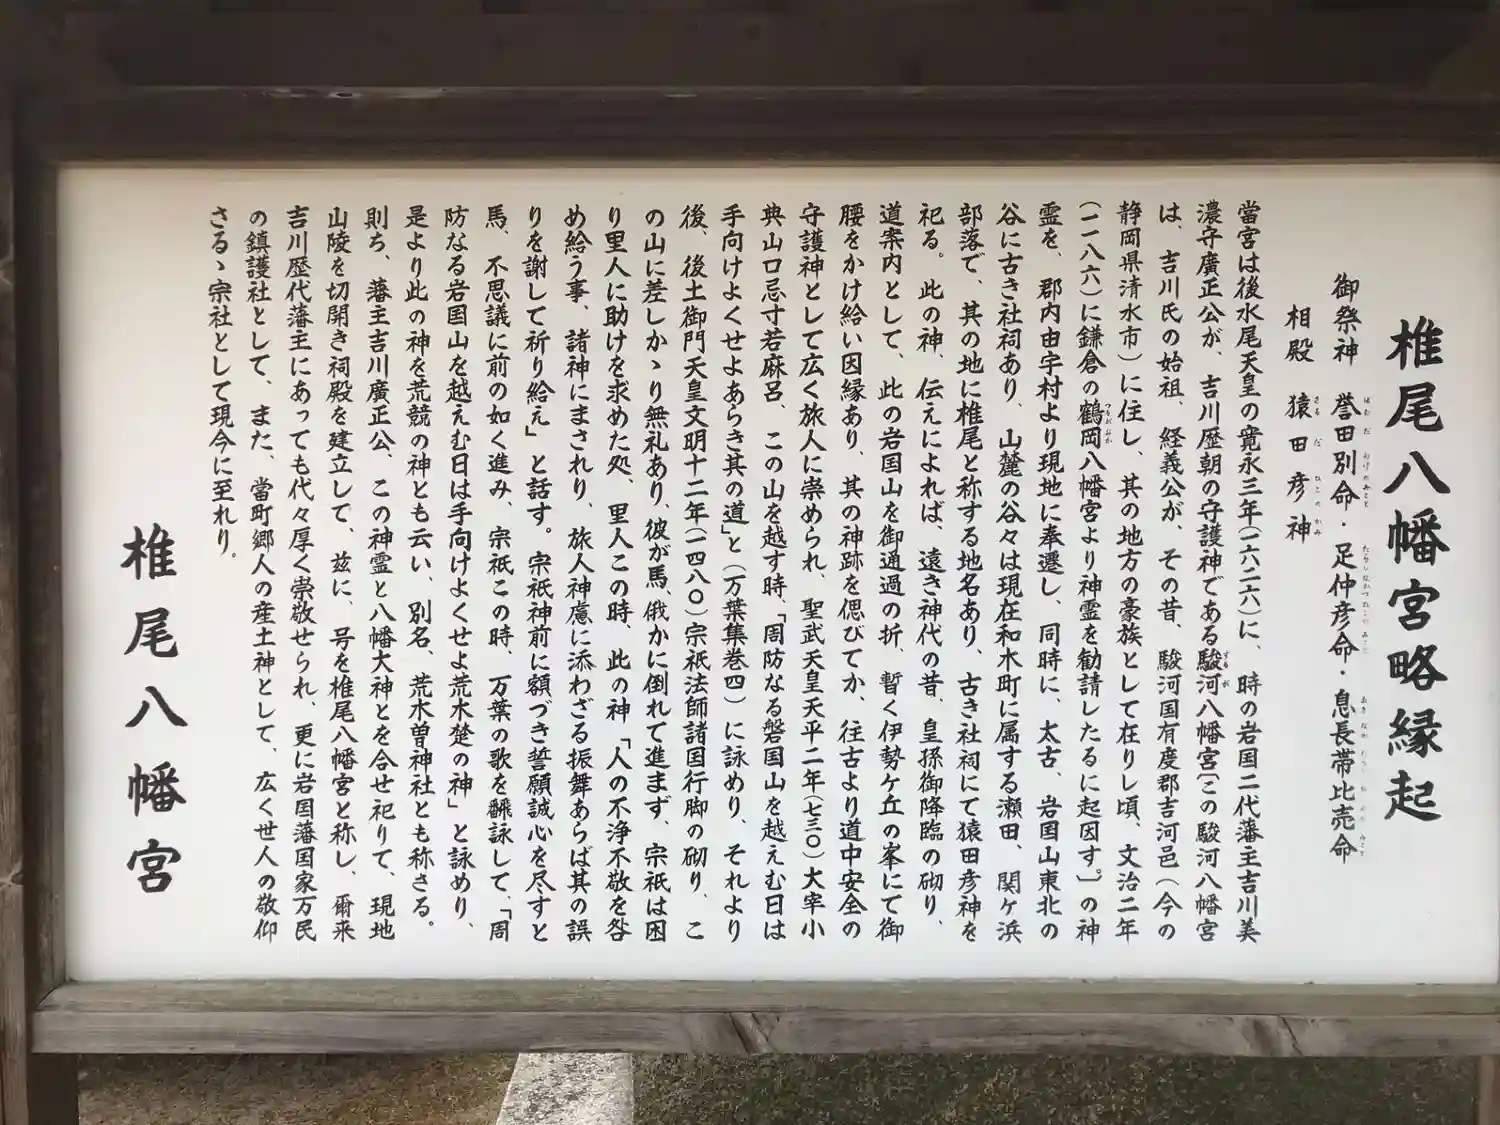 椎尾八幡宮略縁起
御祭神　誉田別命・足仲彦命・息長帯比売命
相殿　猿田彦神
當宮は後水尾天皇の寛永三年(一六二六)に、時の岩国二代藩主吉川美
濃守廣正公が、吉川歴朝の守護神である駿河八幡宮〔この駿河八幡宮
は、吉川氏の始祖、経義公が、その昔、駿河国有度郡吉河邑(今の
静岡県清水市)に住し、其の地方の豪族として在りし頃、文治二年
(一一八六)に鎌倉の鶴岡八幡宮より神霊を勧請したるに起因す。〕の神
霊を、郡内由宇村より現地に奉遷し、同時に、太古、岩国山東北の
谷に古き社祠あり、山麓の谷々は現在和木町に属する瀬田、関ヶ浜
部落で、其の地に椎尾と称する地名あり、古き社祠にて猿田彦神を
祀る。此の神、伝えによれば、遠き神代の昔、皇孫御降臨の砌り、
道案内として、此の岩国山を御通過の折、暫く伊勢ケ丘の峯にて御
腰をかけ給い因縁あり、其の神跡を偲びてか、往古より道中安全の
守護神として広く旅人に崇められ、聖武天皇天平二年(七三〇)大宰小
典山口忌寸若麻呂、この山を越す時、「周防なる磐国山を越えむ日は
手向けよくせよあらき其の道」と(万葉集巻四)に詠めり、それより
後、後土御門天皇文明十二年(一四八〇)宗祇法師諸国行脚の砌り、こ
の山に差しかゝり無礼あり、彼が馬、俄かに倒れて進まず、宗祇は困
り里人に助けを求めた処、里人この時、此の神「人の不浄不敬を咎
め給う事、諸神にまされり、旅人神慮に添わざる振舞あらば其の誤
りを謝して祈り給え」と話す。宗祇神前に額づき誓願誠心を尽すと
馬、不思議に前の如く進み、宗祇この時、万葉の歌を飜詠して、「周
防なる岩国山を越えむ日は手向けよくせよ荒木楚の神」と詠めり、
是より此の神を荒競の神とも云い、別名、荒木曽神社とも称さる。
則ち、藩主吉川廣正公、この神霊と八幡大神とを合せ祀りて、現地
山陵を切開き祠殿を建立して、茲に、号を椎尾八幡宮と称し、爾来
吉川歴代藩主にあっても代々厚く崇敬せられ、更に岩国藩国家万民
の鎮護社として、また、當町郷人の産土神として、広く世人の敬仰
さるゝ宗社として現今に至れり。
椎尾八幡宮